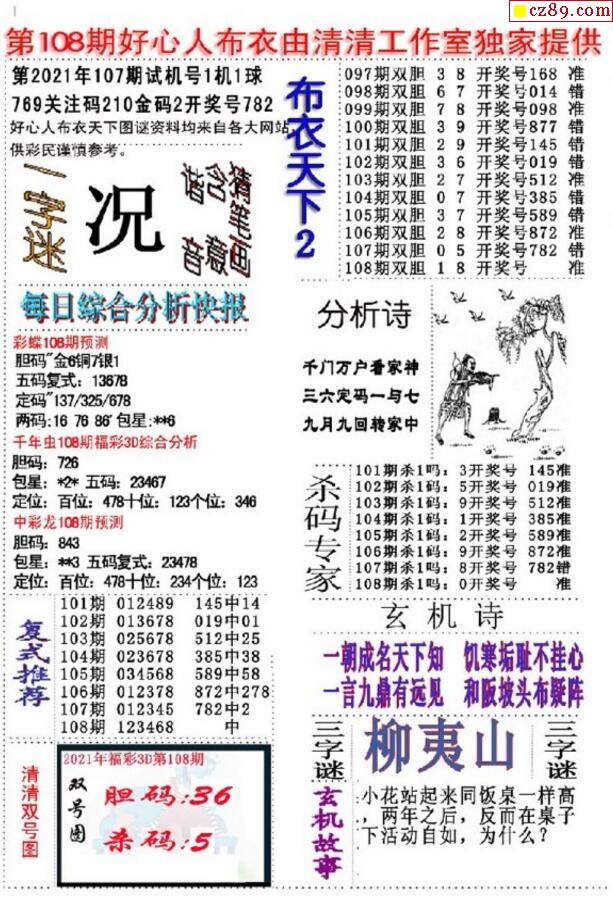 cz89.com
第108期好心人布衣由清清工作室独家提供
第2021年107期试机号1机1球
769关注码210金码2开奖号782
好心人布衣天下图谜资料均来自各大网站
供彩民谨慎参考。
一字迷
况
谐含猜笔画
音意
每日综合分析快报
彩蝶108期预测
胆码"金6铜7银1
五码复式：13678
定码"137/325/678
两码:16 76 86"包星:**6
千年虫108期福彩3D综合分析
胆码：726
包星：*2* 五码：23467
定位：百位：478十位：123个位：346
中彩龙108期预测
胆码：843
包星：**3 五码复式：23478
定位：百位：478十位：234个位：123
复式推荐
101期 012489 145中14
102期 013678 019中01
103期 025678 512中25
104期 023678 385中38
105期 034568 589中58
106期 012378 872中278
107期 012345 782中2
108期 123468 中
清清双号图
2021年福彩3D第108期
双号图
胆码:36
杀码:5
布衣天下2
097期双胆 3 8 开奖号168 准
098期双胆 6 7 开奖号014 错
099期双胆 7 8 开奖号098 准
100期双胆 3 9 开奖号877 错
101期双胆 2 9 开奖号145 错
102期双胆 3 6 开奖号019 错
103期双胆 2 7 开奖号512 准
104期双胆 0 7 开奖号385 错
105期双胆 3 7 开奖号589 错
106期双胆 2 8 开奖号872 准
107期双胆 0 5 开奖号782 错
108期双胆 1 8 开奖号 准
分析诗
千门万户看家神
三六定码一与七
九月九回转家中
杀码专家
101期杀1吗：3开奖号 145准
102期杀1码：5开奖号 019准
103期杀1码：9开奖号 512准
104期杀1码：1开奖号 385准
105期杀1码：2开奖号 589准
106期杀1吗：9开奖号 872准
107期杀1吗：8开奖号 782错
108期杀1码：0开奖号 准
玄机诗
一朝成名天下知 饥寒垢耻不挂心
一言九鼎有远见 和阪坡头布疑阵
三字谜
柳夷山
三字谜
玄机故事
小花站起来同饭桌一样高
，两年之后，反而在桌子
下活动自如，为什么？